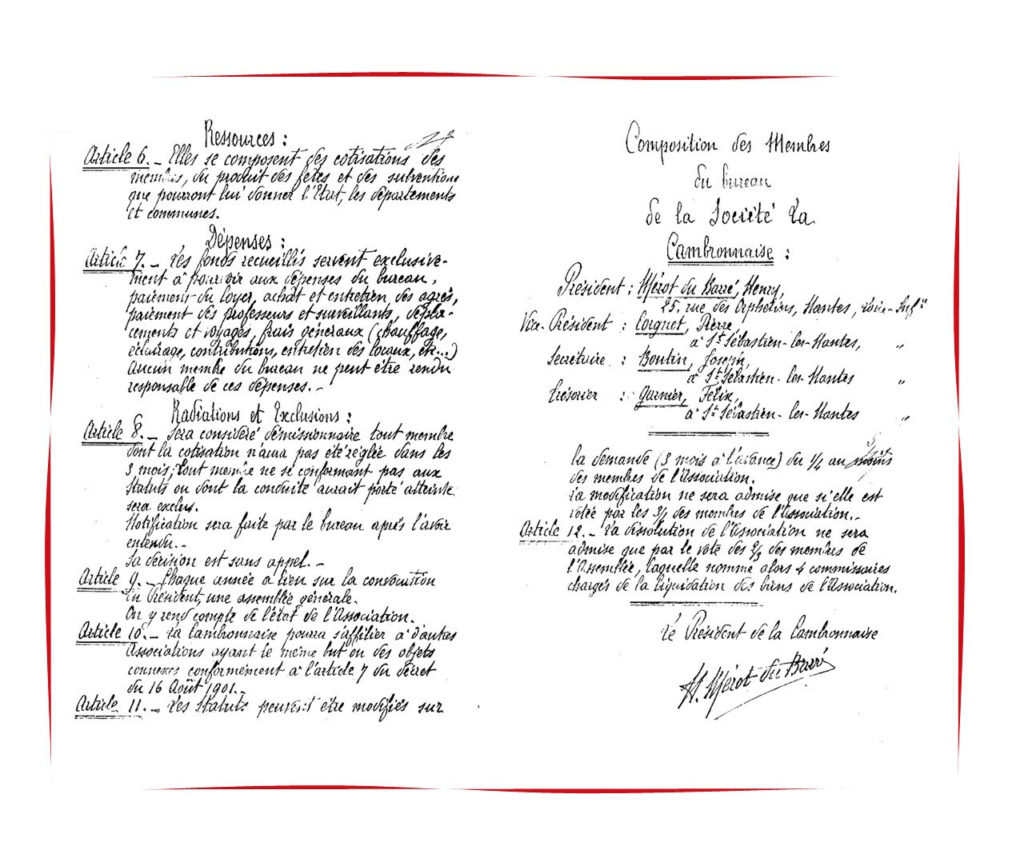 Ressources :
Article 6. _ Elles se composent des cotisations des
membres, du produit des fêtes et des subventions
que pourront lui donner l'Etat, les départements
et communes.
Dépenses :
Article 7. _ Les fonds recueillis servent exclusive-
ment à pourvoir aux dépenses du bureau,
paiement du loyer, achat et entretien des agrès,
paiement des professeurs et surveillants, dépla-
cements et voyages, frais généraux (chauffage,
éclairage, contributions, entretien des locaux, etc...)
Aucun membre du bureau ne peut être rendu
responsable de ces dépenses. _
Radiations et Exclusions :
Article 8. _ Sera considéré démissionnaire tout membre
dont la cotisation n'aura pas été réglée dans les
3 mois, tout membre ne se conformant pas aux
Statuts ou dont la conduite aurait porté atteinte
sera exclus.
Notification sera faite par le bureau après l'avoir
entendu. _
Sa décision est sans appel. _
Article 9. _ Chaque année a lieu sur la convocation
du Président, une assemblée générale.
On y rend compte de l'état de l'Association.
Article 10. _ La Cambronnaise pourra s'affilier à d'autres
Associations ayant le même but ou des objets
connexes conformément à l'article 7 du décret
du 16 Août 1901. _
Article 11. _ Les Statuts peuvent être modifiés sur
Composition des Membres
du bureau
de la Société La
Cambronnaise :
Président : Mérot du Barré, Henry,
25, rue des Orphelins, Nantes, Loire-Infre
Vice-Président : Coignet, Pierre,
à St Sébastien-les-Nantes, "
Secrétaire : Boutin, Joseph,
à St Sébastien-les-Nantes "
Trésorier : Garnier, Félix,
à St Sébastien-les-Nantes "
la demande (3 mois à l'avance) du 1/4 au moins
des membres de l'Association.
La modification ne sera admise que si elle est
votée par les 3/4 des membres de l'Association. _
Article 12. _ La dissolution de l'Association ne sera
admise que par le vote des des membres de
l'Assemblée, laquelle nomme alors 4 commissaires
chargés de la liquidation des biens de l'Association.
Le Président de la Cambronnaise
H. Mérot du Barré